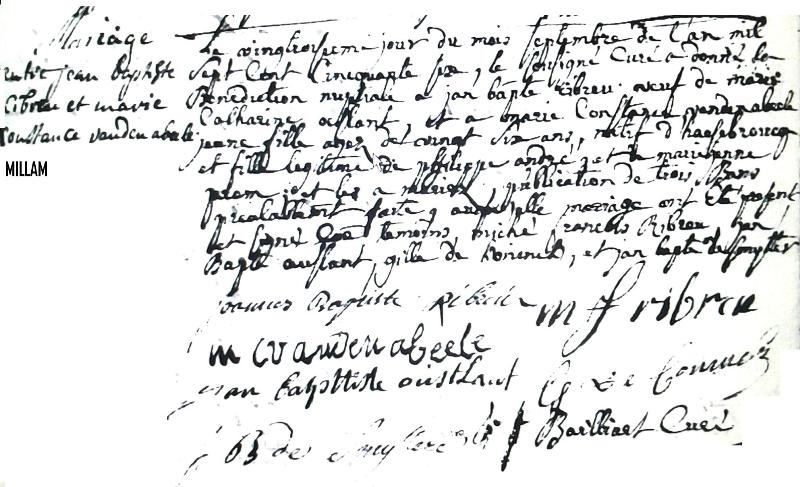 Mariage
entre jean baptiste
Ribreu et marie
Constance vandenabeele
MILLAM
Le vingtroisieme jour du mois septembre de l'an mil
sept cent cinquante six, le soussigné Curé a donné la
Benediction nuptiale a jan bapte Ribreu veuf de marie
Catharine oustlant, et a marie Constance vandenabeele
jeune fille agée de vingt six ans, natif d'haesbroucq
et fille legitime de philippe andré, et de marienne
et les a mariez, publication de trois Bans
prealablement faite, auquelle mariage ont été present
et signé Comme temoins, michel francois Ribreu, jan
Bapte oustlant, gille de Coninck, et jan bapte de Smyttere
joannes Baptiste Ribreu m f ribreu
m c vandenabeele
jean baptiste oustlant G de Coninck
J B de Smyttere Bailliaet Curé